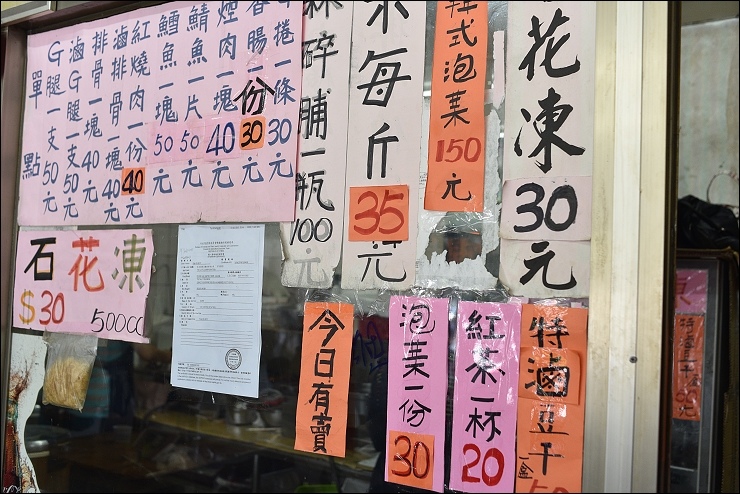 單點
G腿一支50元
滷G腿一支50元
排骨一塊40元
滷排骨一塊40元
紅燒肉一份40元
鱈魚一塊50元
鯖魚一片50元
煙肉一塊40元
香腸一份30元
捲一條30元
碎脯一瓶100元
米每斤35元
式泡菜150元
花凍30元
石花凍
$30 500CC
今日有賣
泡菜一份30
紅茶一杯20
特滷豆干一盒50